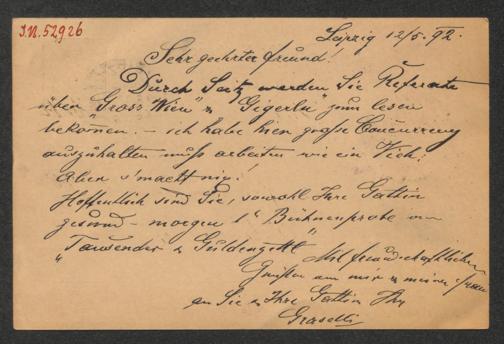 I.N. 52926
Leipzig 12/5. 92.
Sehr geehrter Freund!
Durch Seitz werden Sie Referate
über "Gross Wien" u "Gigerln" zum lesen
bekommen. – ich habe hier große Concurrenz
auszuhalten muß arbeiten wie ein Vieh!
Aber s'macht nix!
Hoffentlich sind Sie, sowohl Ihre Gattin
gesund – morgen 1te Bühnenprobe von
"Tausender u Guldenzettl"
Mit freundschaftlichen
Grüßen von mir u meiner Frau
an Sie u Ihre Gattin Ihr
Graselli